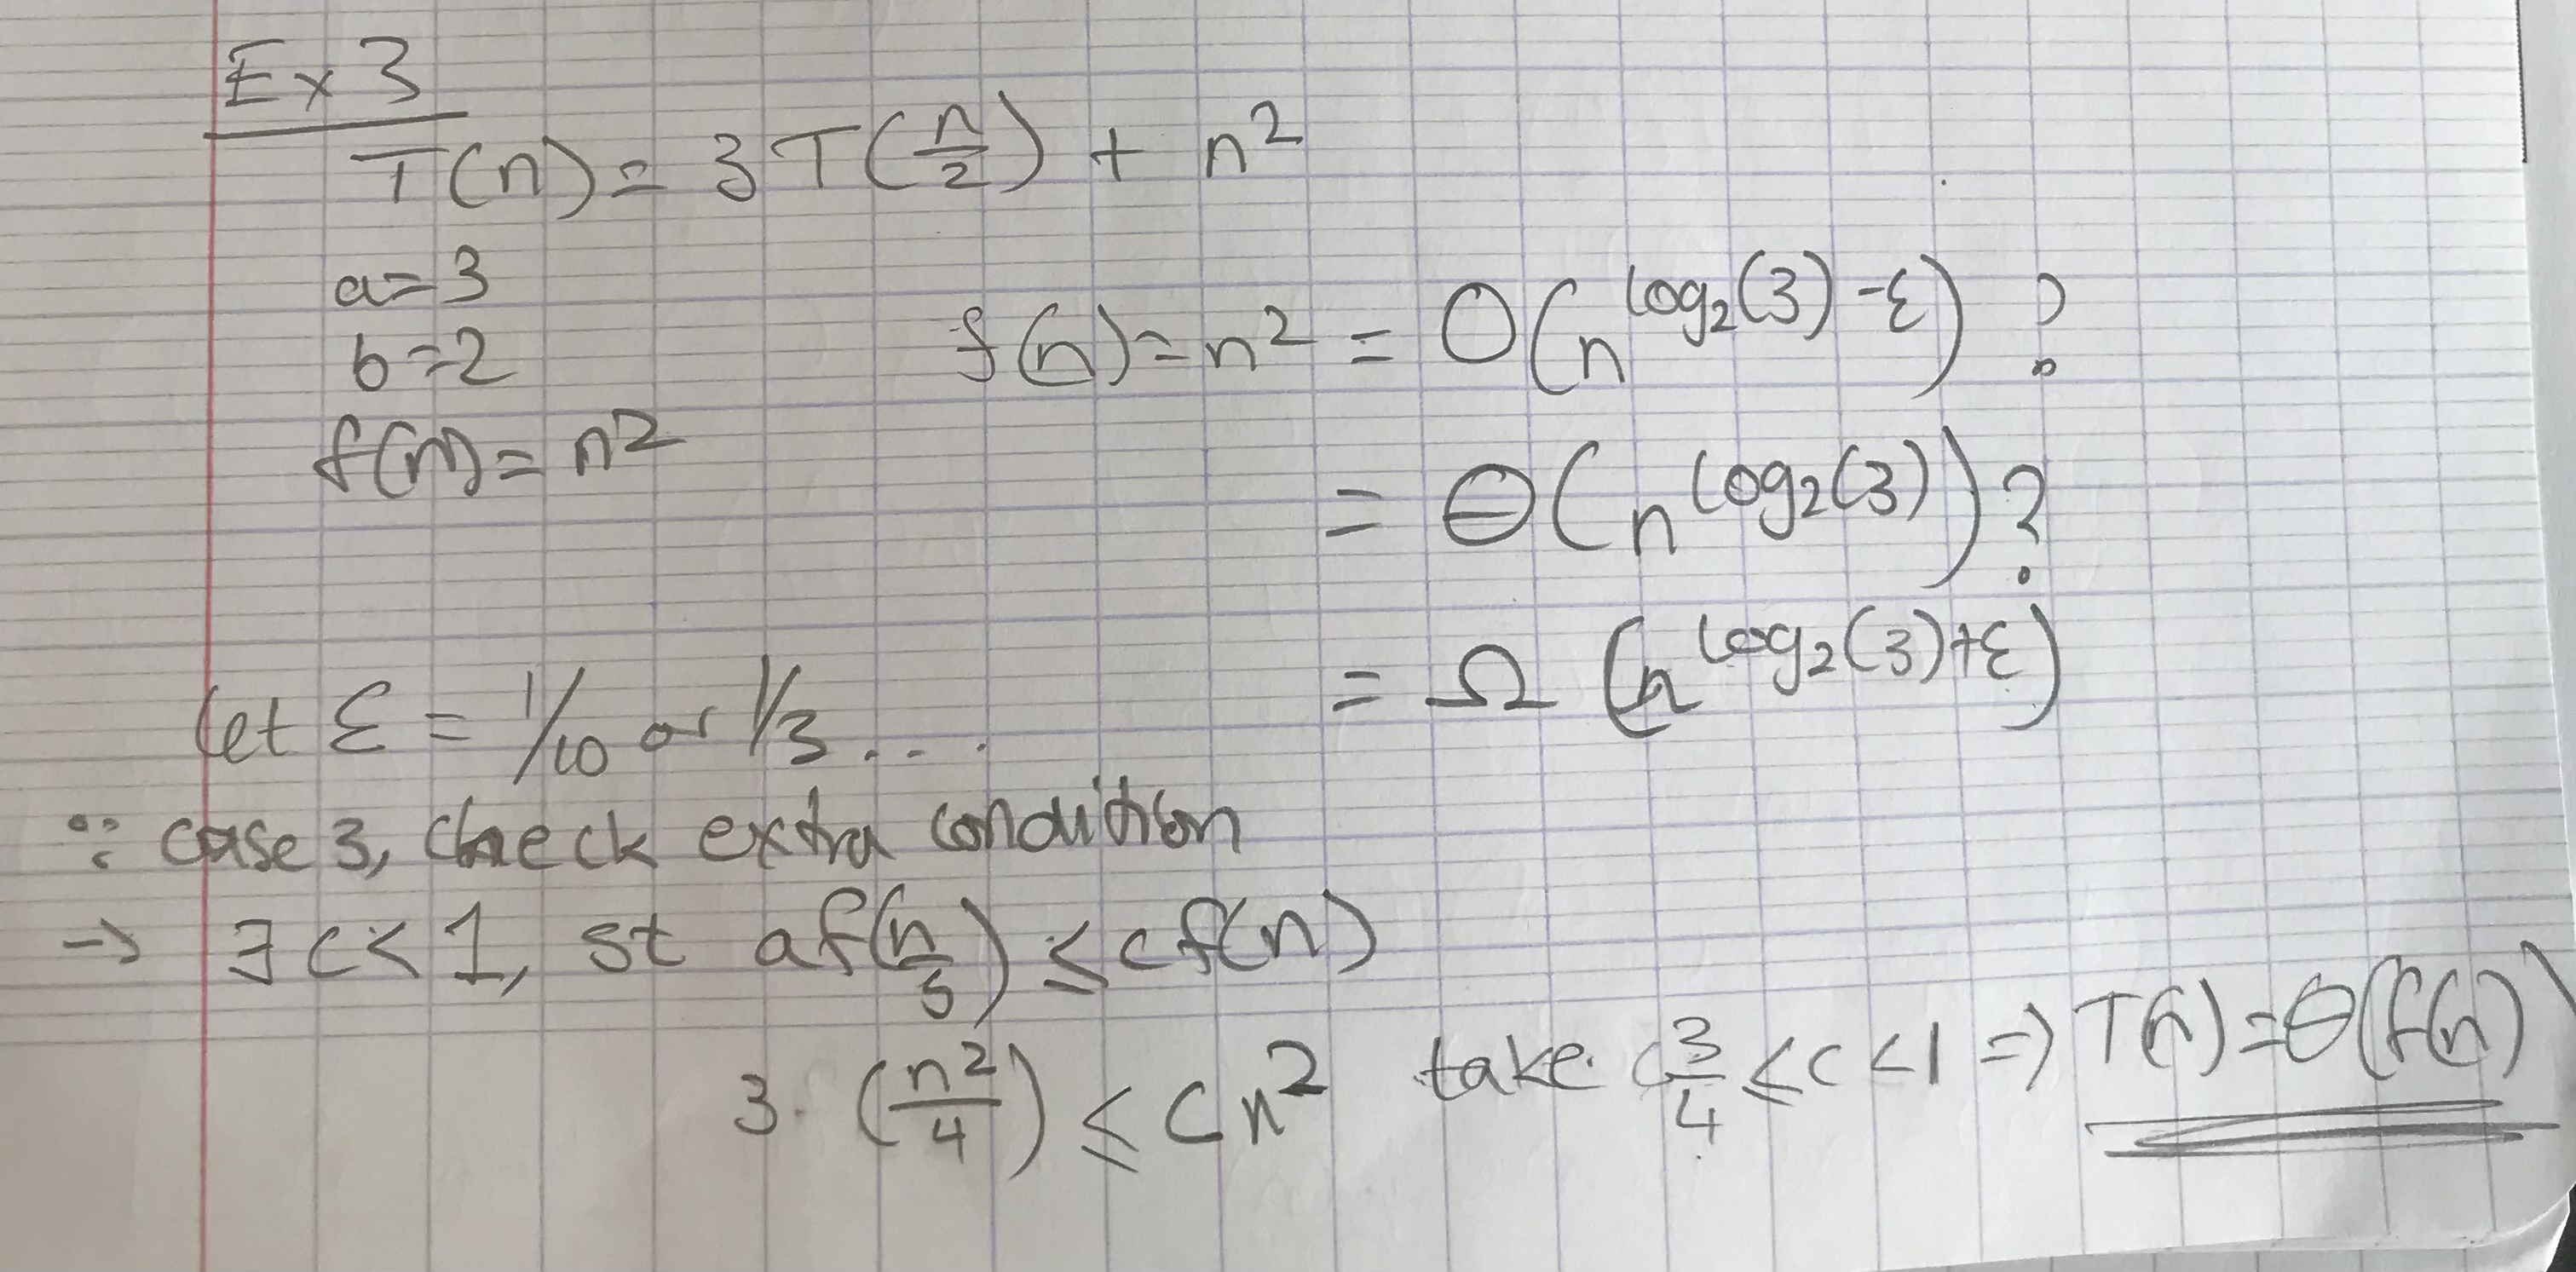 Ex 3
T(n) = 3T(n/2) + n²
a=3
b=2
f(n) = n²
f(n) = n² = O(n^(log₂(3)-ε)) ?
= Θ(n^(log₂(3))) ?
= Ω(n^(log₂(3)+ε))
let ε = 1/10 or 1/3 ...
∵ case 3, check extra condition
→ ∃ c < 1, st af(n/b) ≤ cf(n)
3. (n²/4) ≤ cn² take 3/4 ≤ c < 1 ⇒ T(n) = Θ(f(n))